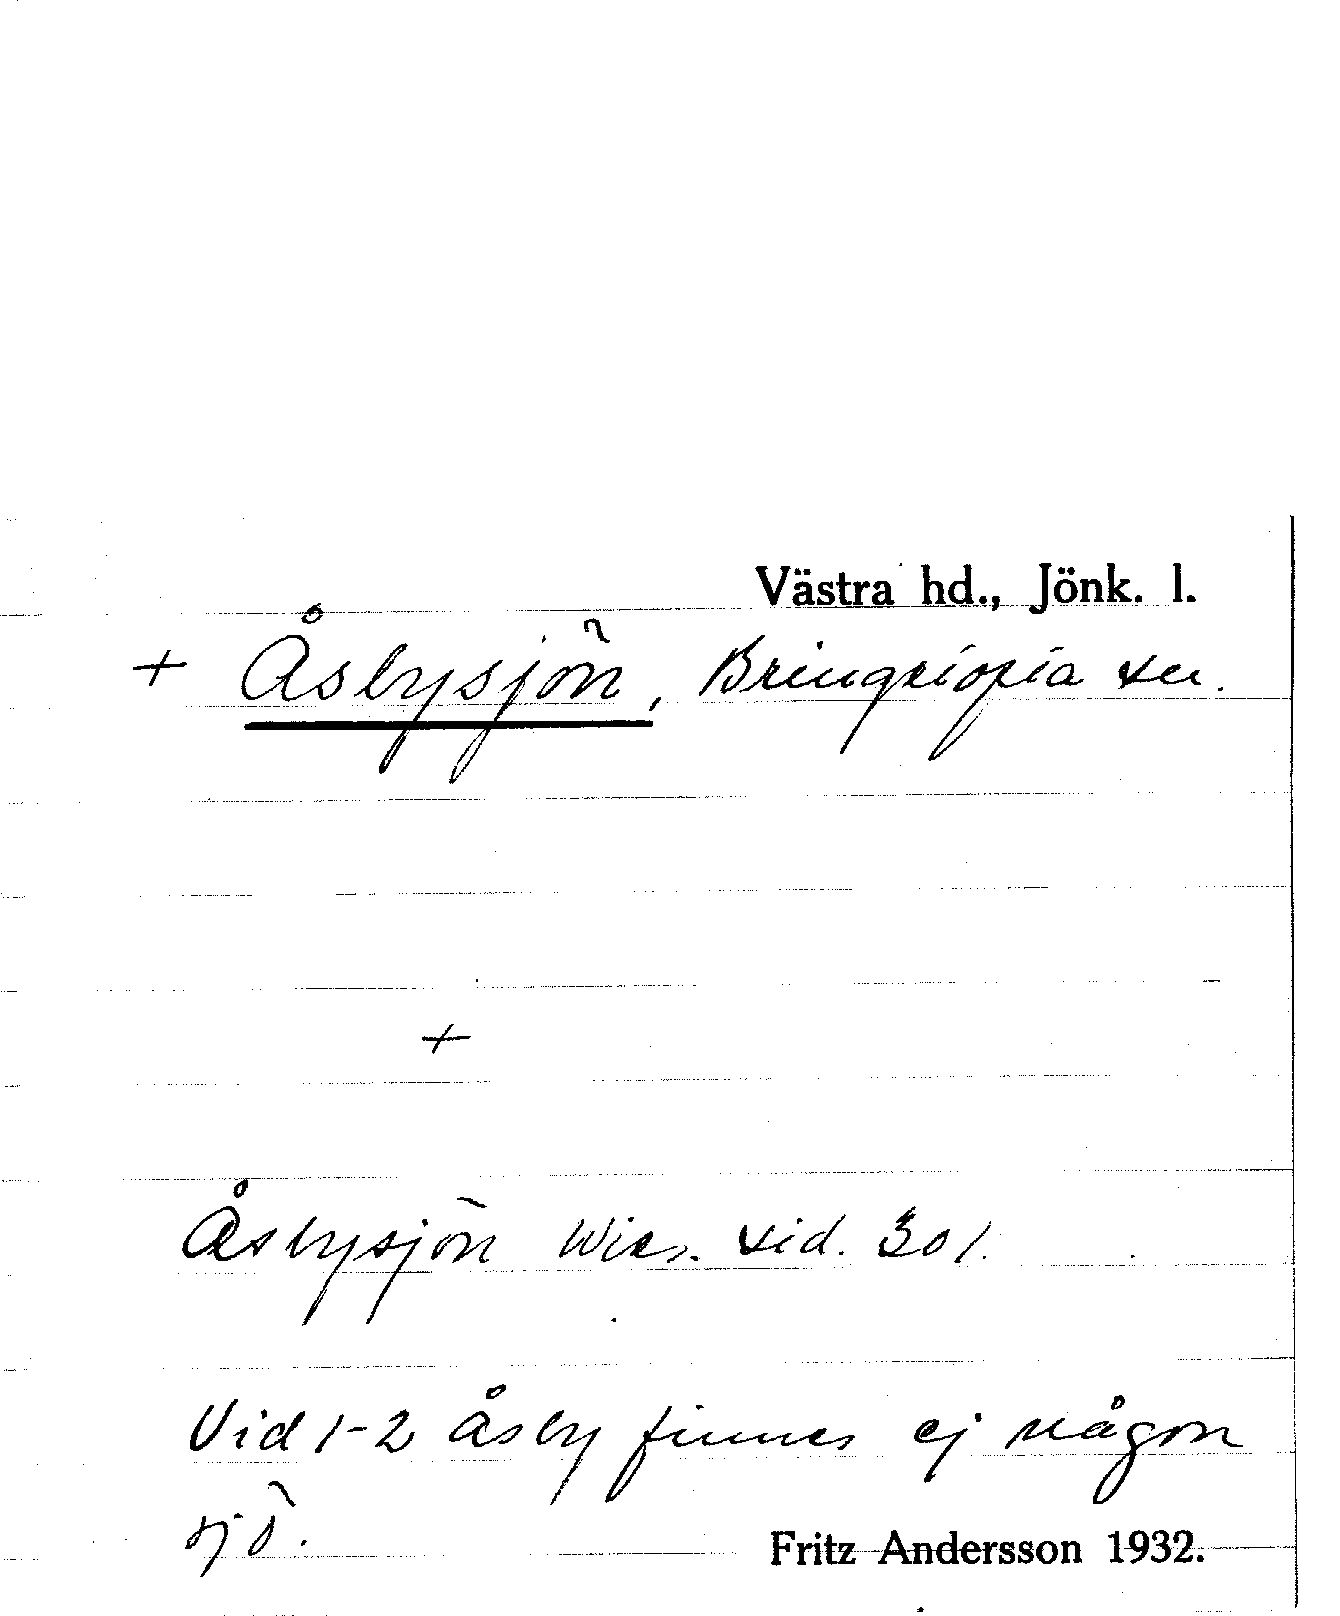 Västra hd., Jönk. l.
+ Åsbysjön, Bringetofta sn.
+
Åsbysjön Wies. sid. 301.
Vid 1-2 Åsby finnes ej någon
sjö.
Fritz Andersson 1932.